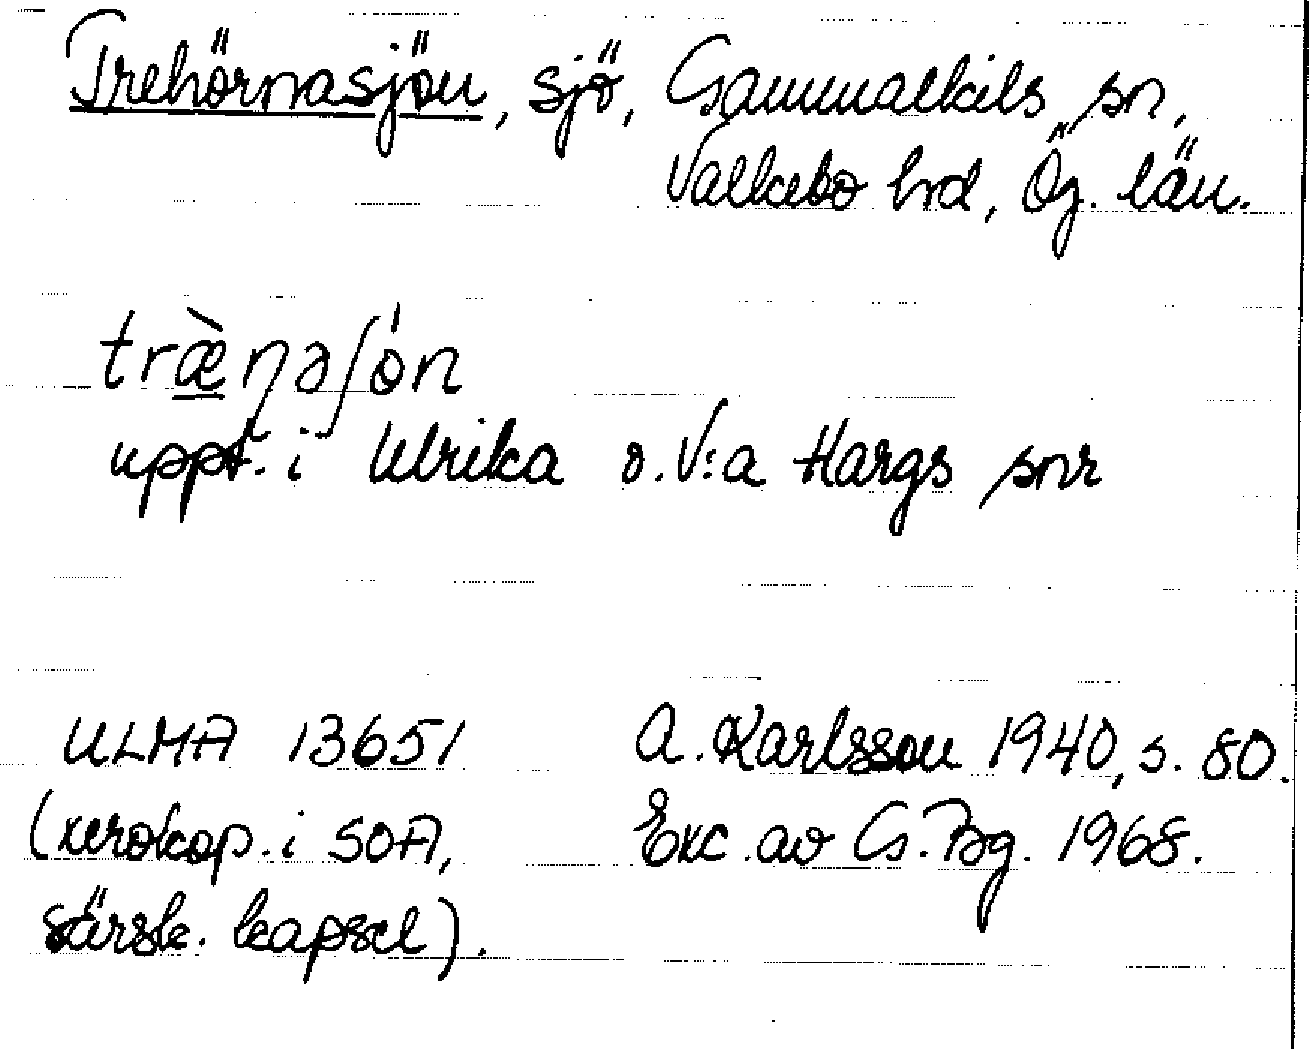 Trehörnasjön, sjö, Gammalkils sn,
Valkebo hrd, Ög. län.
træ̀ɳəʃón
uppt. i Ulrika o. V:a Hargs snr
ULMA 13651 A. Karlsson 1940, s. 80.
(xerokop. i SOA, Exc. av G. Bg. 1968.
särsk. kapsel).